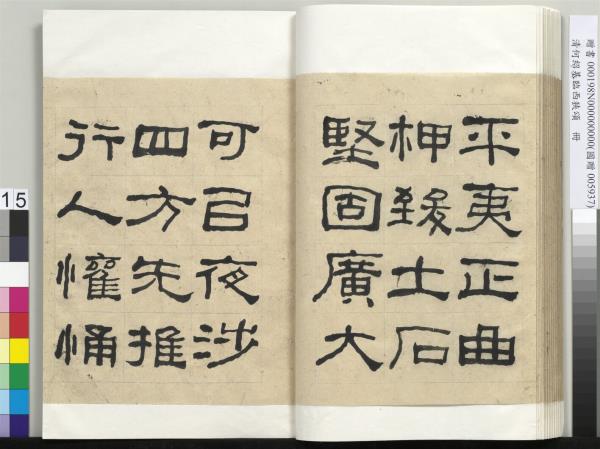 平夷正曲
柙致土石
堅固廣大
可㠯夜涉
四方先推
行人懽悀
贈書 000198N000000000(國贈 005937)
清何紹基臨西狹頌 冊
15